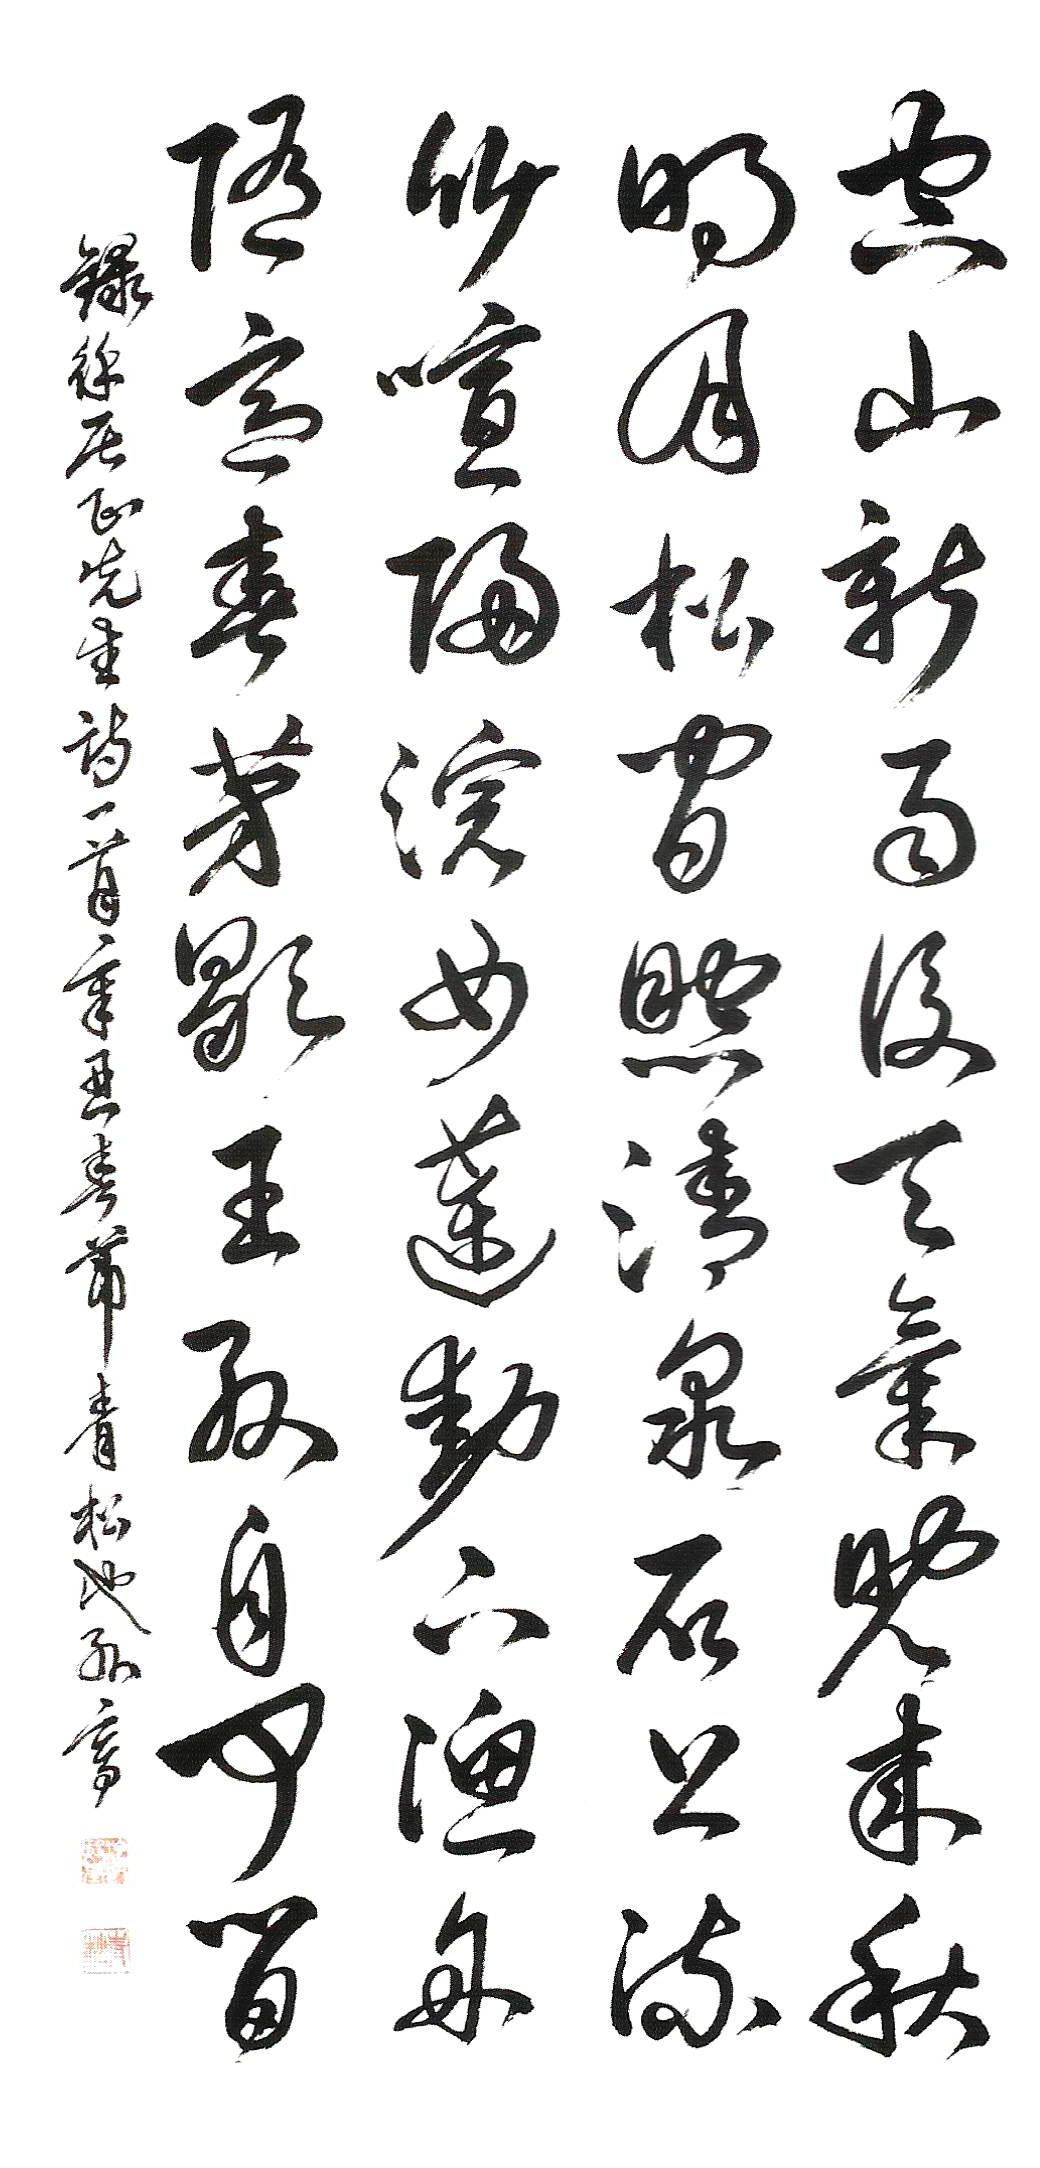 空山新雨後天氣晚來秋
明月松間照清泉石上流
竹喧歸浣女蓮動下漁舟
隨意春芳歇王孫自可留
錄徐居正先生詩一首辛丑春節青松池